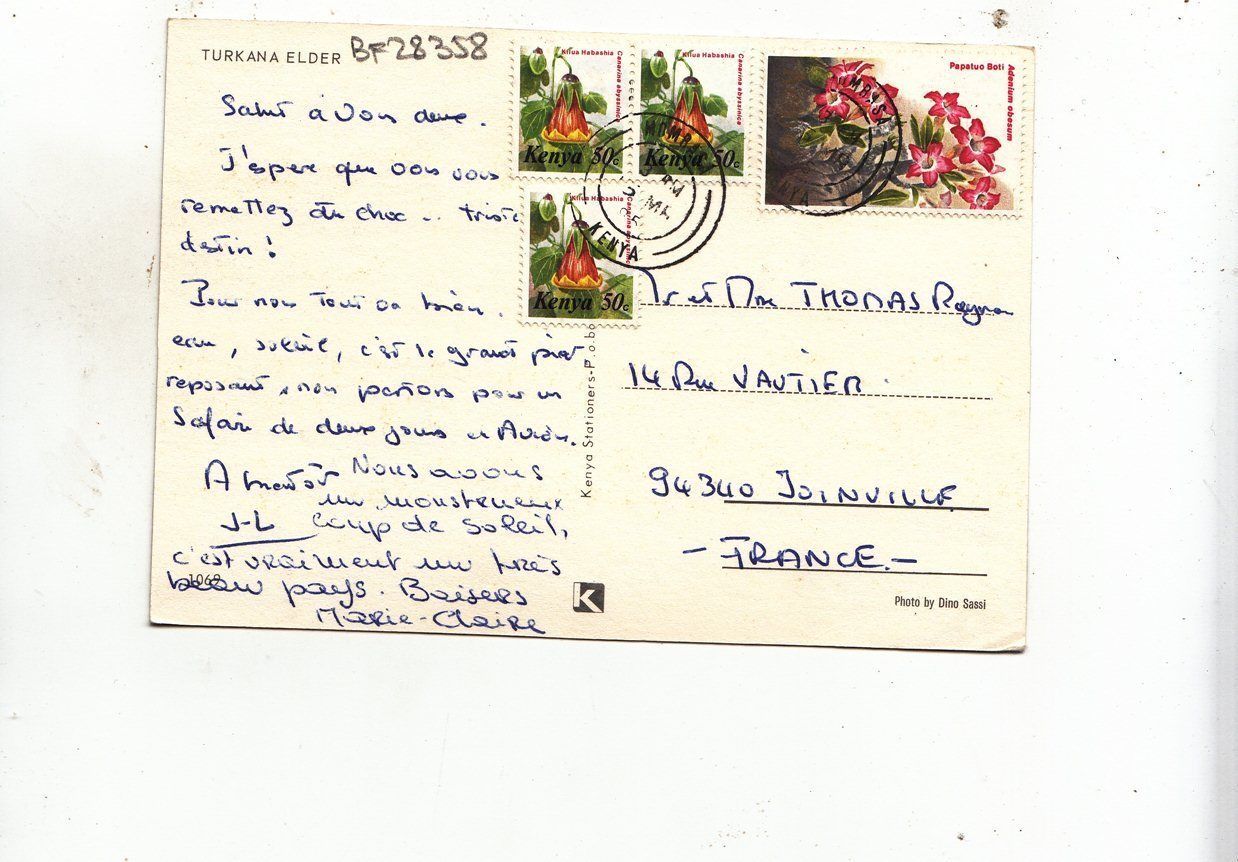 TURKANA ELDER BF28358
Salut à Vous deux.
J'espere que vous vous
remettez du choc .. triste
destin !
Pour nous Tout va bien.
eau, soleil, c'est le grand pied
reposant, nous partons pour un
Safari de deux jours en Avion.
A bientôt
J-L
Nous avons
un monstrueux
coup de soleil,
c'est vraiment un très
beau pays. Baisers
Marie-Claire
1069
Kilua Habashia
Canarina abyssinica
Kenya 50c
Kilua Habashia
Canarina abyssinica
Kenya 50c
Kilua Habashia
Canarina abyssinica
Kenya 50c
Papatuo Boti
Adenium obesum
KENYA
Kenya Stationers-P.o.bo
Mr et Mme THOMAS
14 Rue VAUTIER
94340 JOINVILLE
- FRANCE.-
K
Photo by Dino Sassi